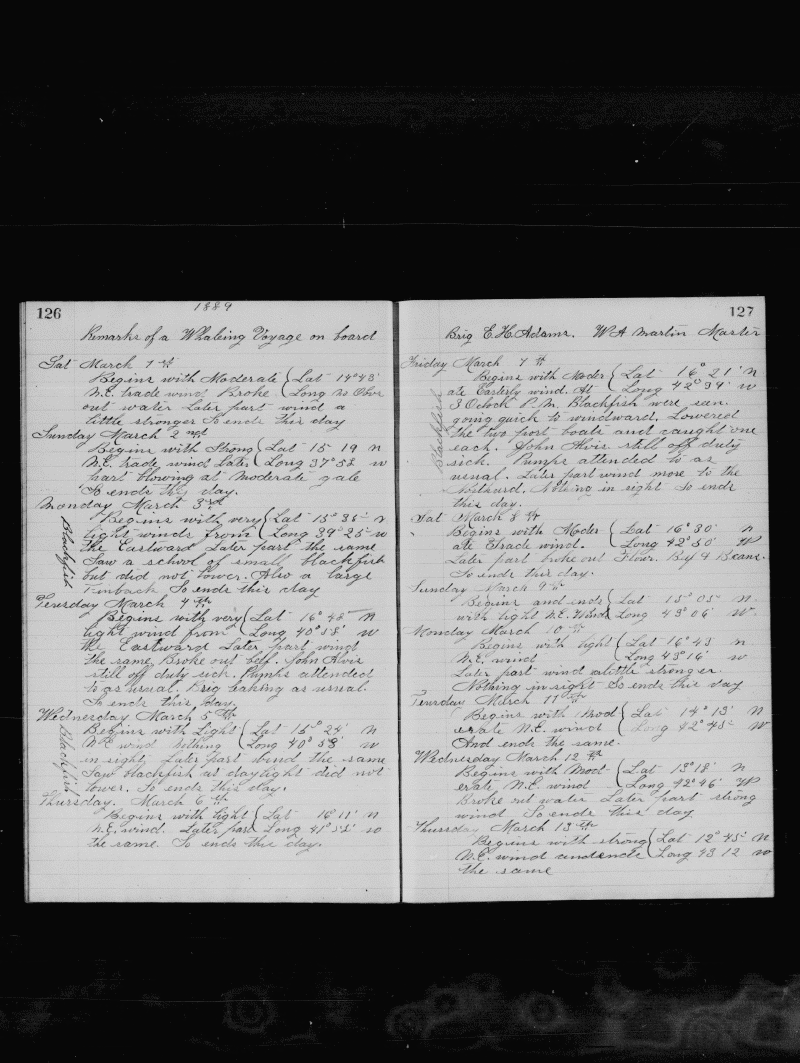 126
1889
Remarks of a Whaleing Voyage on board
Sat March 1st
Begins with Moderate { Lat 14° 43'
N.E. trade wind Broke { Long No Obs
out water Later part wind a
little stronger So ends this day
Sunday March 2nd
Begins with Strong { Lat 15 19 N
N.E. trade wind Later { Long 37° 52 W
part blowing at Moderate gale
So ends this day.
Monday March 3rd
Begins with very { Lat 15° 35' N
light winds from { Long 39° 25 W
the Eastward Later part the same
Saw a school of small blackfish
but did not lower. Also a large
Finback So ends this day
Blackfish
Teursday March 4th
Begins with very { Lat 16° 45' N
light wind from { Long 40° 58' W
the Eastward Later part wind
the same Broke out beff. John Alvis
still off duty sick. Pumps attended
to as usual. Brig leaking as usual.
So ends this day.
Wednesday March 5th
Begins with Light { Lat 16° 24' N
N.E. wind Nothing { Long 40° 58' W
in sight, Later part wind the same
Saw blackfish at daylight did not
lower. So ends this day.
Blackfish
Thursday. March 6th
Begins with light { Lat 16° 11' N
N.E. wind. Later part Long 41° 52' W
the same. So ends this day.
127
Brig E. H. Adams. W A Martin Master
Friday March 7th
Begins with Moder { Lat 16° 21' N
ate Easterly wind. At { Long 42° 34' W
3 Oclock P.M. Blackfish were seen
going quick to windward. Lowered
the two port boats and caught one
each. John Alvis still off duty
sick. Pumps attended to as
usual. Later part wind more to the
Nothurd. Nothing in sight So ends
this day.
Blackfish
Sat March 8th
Begins with Moder { Lat 16° 30' N
ate Trade wind. { Long 42° 50' W
Later part broke out Flour. Bef & Beans.
So ends this day.
Sunday March 9th
Begins and ends { Lat 15° 05' N
with light N.E. Wind { Long 43° 06' W.
Monday March 10th
Begins with light { Lat 16° 43 N
N.E. wind { Long 43° 16' W
Later part wind alittle stronger.
Nothing in sight So ends this day
Teursday March 11th
Begins with Mod { Lat 14° 13' N
erate N.E. wind { Long 42° 45' W
And ends the same.
Wednesday March 12th
Begins with Mod { Lat 13° 18' N
erate N.E. wind { Long 42° 46' W
Broke out water Later part strong
wind So ends this day
Thursday March 13th
Begins with strong { Lat 12° 45' N
N.E. wind and ends { Long 43 12 W
the same